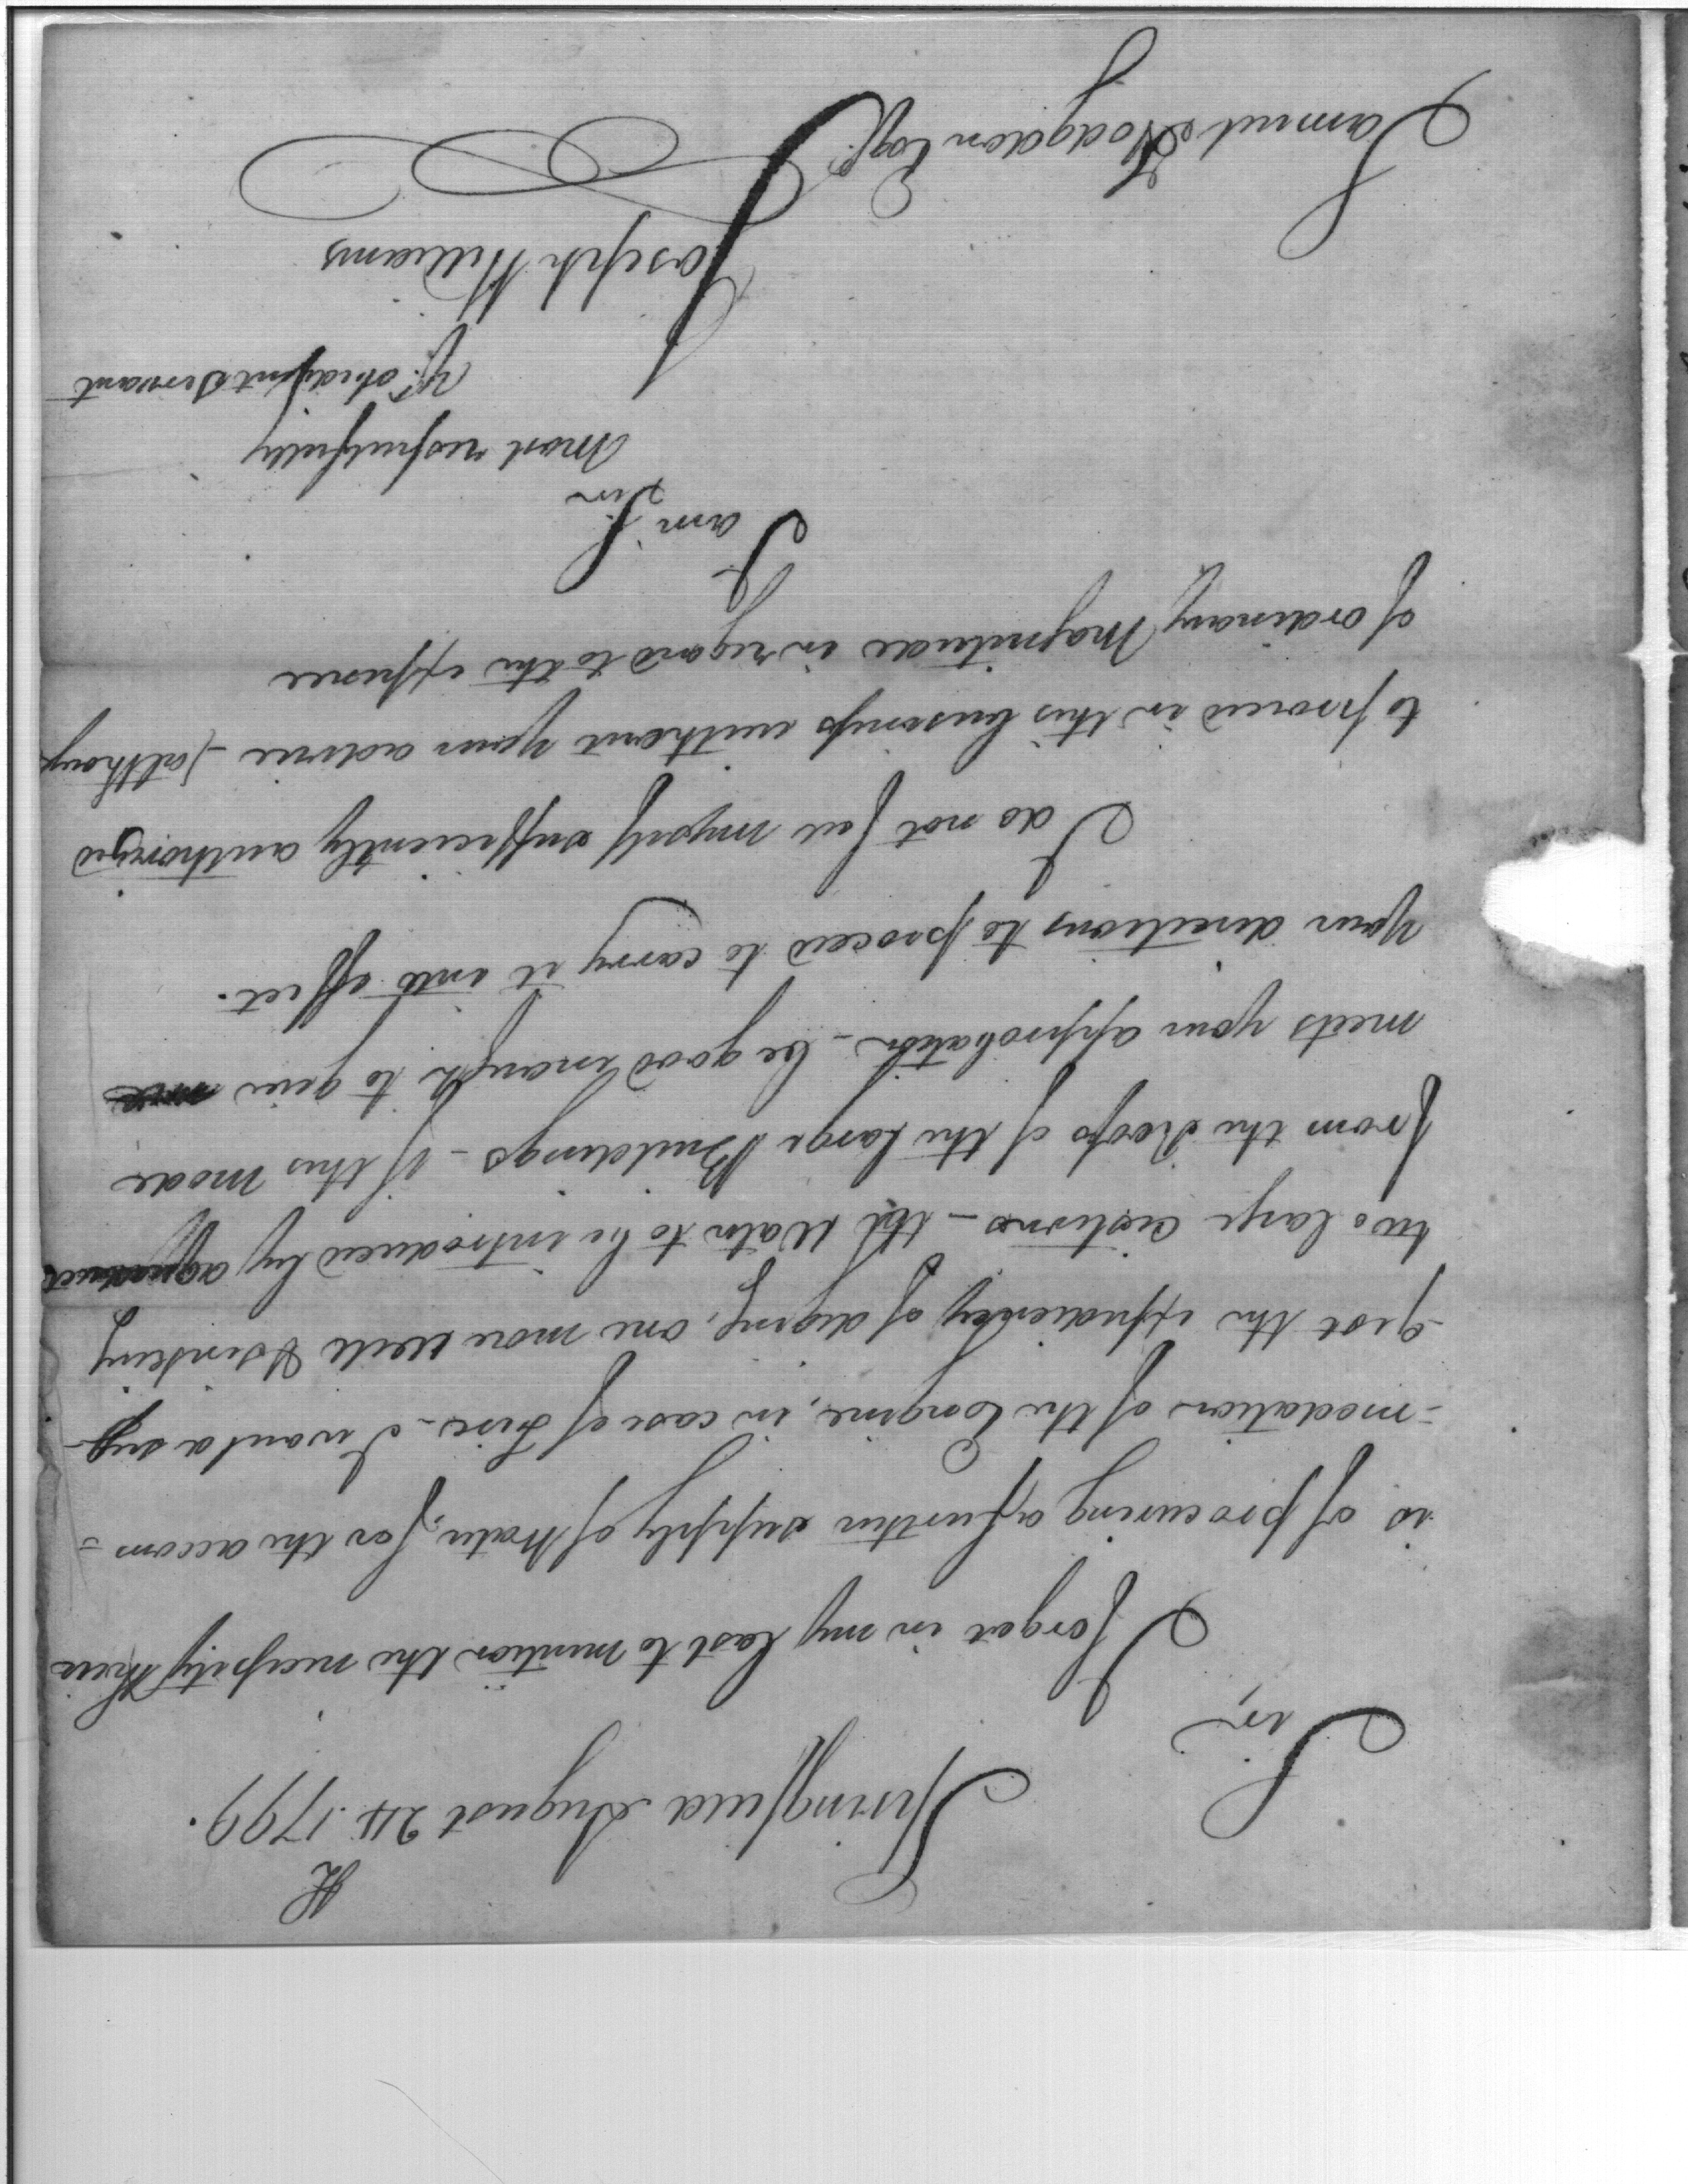 Springfield August 24th. 1799.
Sir,
I forgot in my last to mention the necessity there
is of procuring a further supply of Water, for the accom=
=modation of the Engine, in case of Fire - I would sug-
-gest the expediency of diging, one more well & sinking
two large cisterns - the Water to be introduced by aqueduct
from the Roofs of the large Buildings - if this mode
meets your approbation - be good enough to give me
your directions to proceed to carry it into effect.
I do not feel myself sufficiently authorized
to proceed in this business without your advice - (althoug
of ordinary Magnitude in regard to the expence
I am Sir
Sir
Most respectfully
Yr. obedient Servant
Joseph Williams
Samuel Hodgdon Esqr.